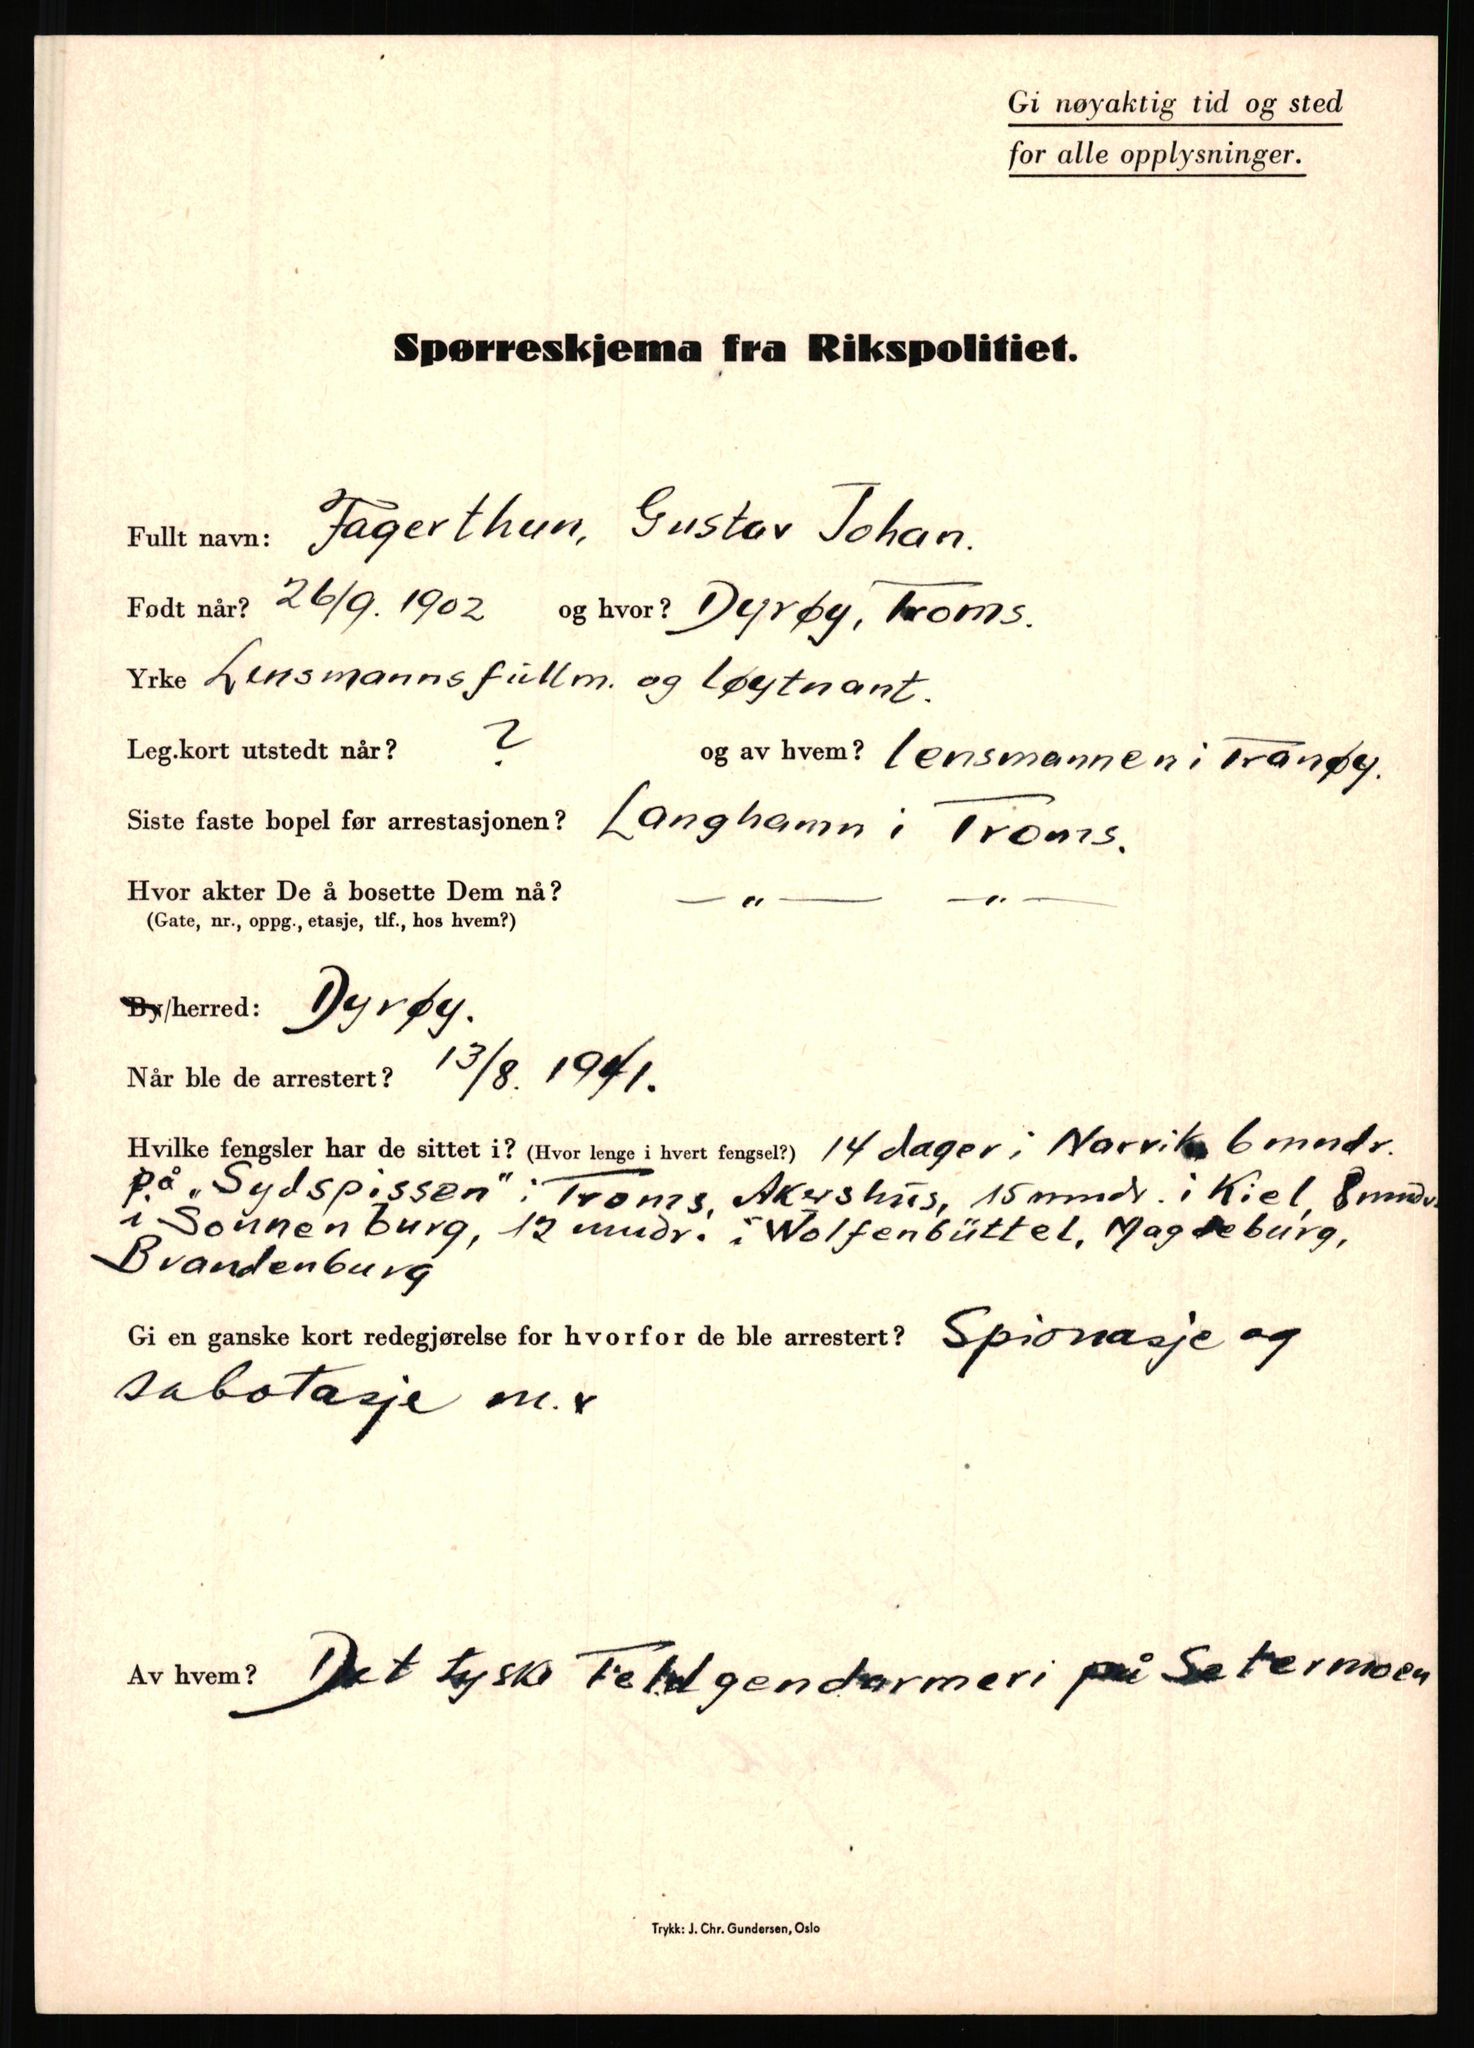 Gi nøyaktig tid og sted
for alle opplysninger.
Spørreskjema fra Rikspolitiet.
Fullt navn: Fagerthun, Gustav Johan.
Født når? 26/9. 1902 og hvor? Dyrøy, Troms.
Yrke Lensmannsfullm. og løytnant.
Leg.kort utstedt når? ? og av hvem? lensmannen i Tranøy.
Siste faste bopel før arrestasjonen? Langhamn i Troms.
Hvor akter De å bosette Dem nå? — " — — " —
(Gate, nr., oppg., etasje, tlf., hos hvem?)
By/herred: Dyrøy.
Når ble de arrestert? 13/8. 1941.
Hvilke fengsler har de sittet i? (Hvor lenge i hvert fengsel?) 14 dager i Narvik 6 mndr.
på „Sydspissen" i Troms, Akershus, 15 mndr. i Kiel, 8 mndr.
i Sonnenburg, 12 mndr. i Wolfenbüttel, Magdeburg,
Brandenburg
Gi en ganske kort redegjørelse for hvorfor de ble arrestert? Spionasje og
sabotasje m.v
Av hvem? Det tyske Feldgendarmeri på Setermoen
Trykk: J. Chr. Gundersen, Oslo